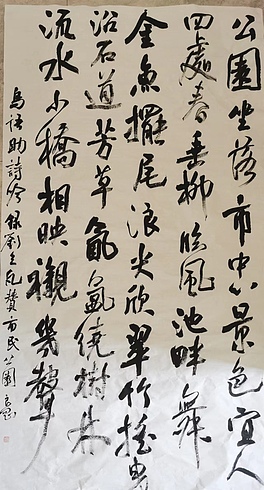 公園坐落市中心景色宜人
四處春垂柳臨風池畔舞
金魚擺尾浪尖欣翠竹搖曳
沿石道芳草氤氳繞樹林
流水小橋相映襯幾聲
鳥語助詩吟 錄劉立凡贊市民公園